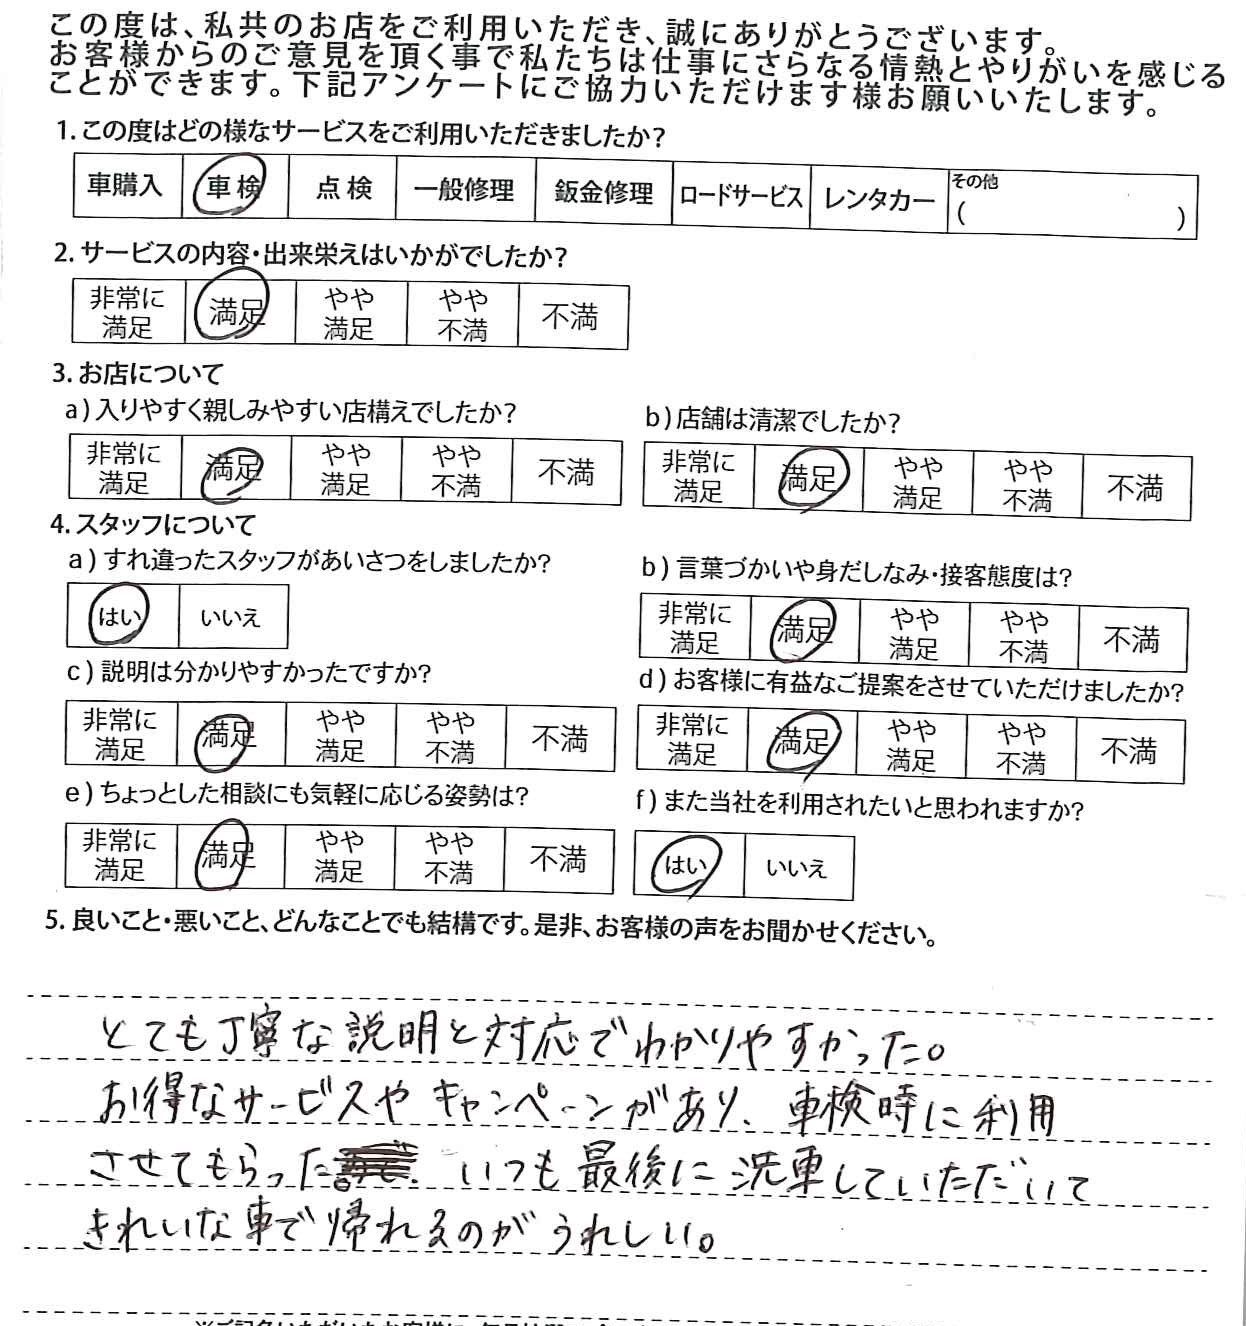 この度は、私共のお店をご利用いただき、誠にありがとうございます。
お客様からのご意見を頂く事で私たちは仕事にさらなる情熱とやりがいを感じる
ことができます。下記アンケートにご協力いただけます様お願いいたします。
1.この度はどの様なサービスをご利用いただきましたか?
車購入 車検 点検 一般修理 鈑金修理 ロードサービス レンタカー その他 ( )
2.サービスの内容・出来栄えはいかがでしたか?
非常に満足 満足 やや満足 やや不満 不満
3.お店について
a)入りやすく親しみやすい店構えでしたか?
非常に満足 満足 やや満足 やや不満 不満
b)店舗は清潔でしたか?
非常に満足 満足 やや満足 やや不満 不満
4.スタッフについて
a)すれ違ったスタッフがあいさつをしましたか?
はい いいえ
b)言葉づかいや身だしなみ・接客態度は?
非常に満足 満足 やや満足 やや不満 不満
c)説明は分かりやすかったですか?
非常に満足 満足 やや満足 やや不満 不満
d)お客様に有益なご提案をさせていただけましたか?
非常に満足 満足 やや満足 やや不満 不満
e)ちょっとした相談にも気軽に応じる姿勢は?
非常に満足 満足 やや満足 やや不満 不満
f)また当社を利用されたいと思われますか?
はい いいえ
5.良いこと・悪いこと、どんなことでも結構です。是非、お客様の声をお聞かせください。
とても丁寧な説明と対応でわかりやすかった。
お得なサービスやキャンペーンがあり、車検時に利用
させてもらった いつも最後に洗車していただいて
きれいな車で帰れるのがうれしい。